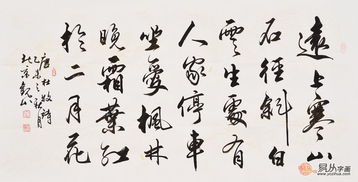 遠上寒山
石徑斜白
雲生處有
人家停車
坐愛楓林
晚霜葉紅
於二月花
唐杜牧詩
易从字画